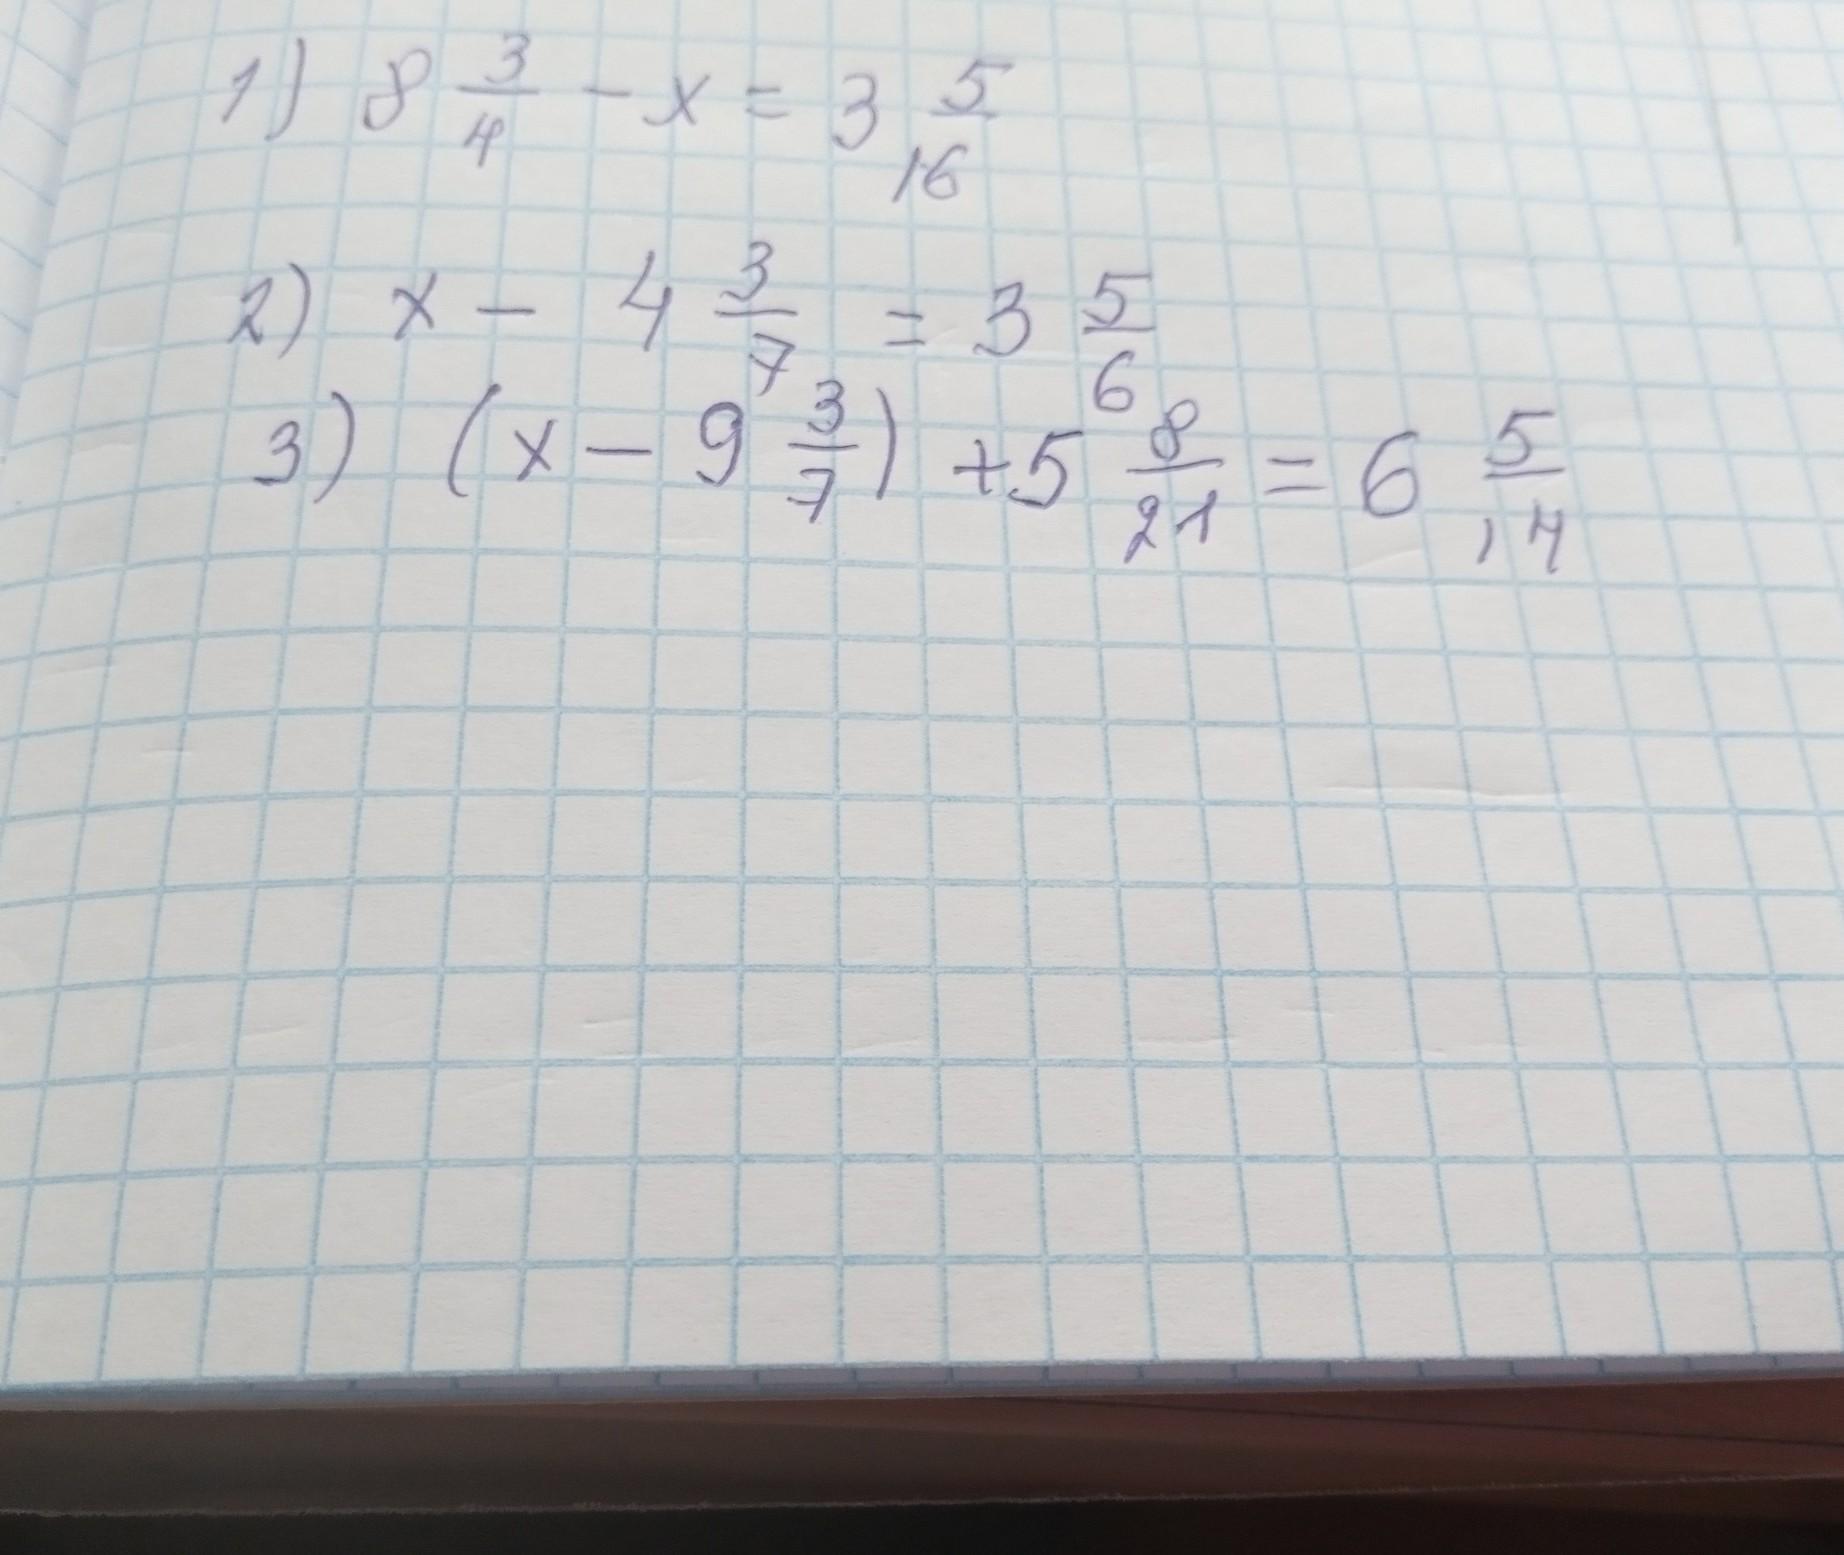 1) 8 3/4 - x = 3 5/16
2) x - 4 3/7 = 3 5/6
3) (x - 9 3/7) + 5 8/21 = 6 5/14